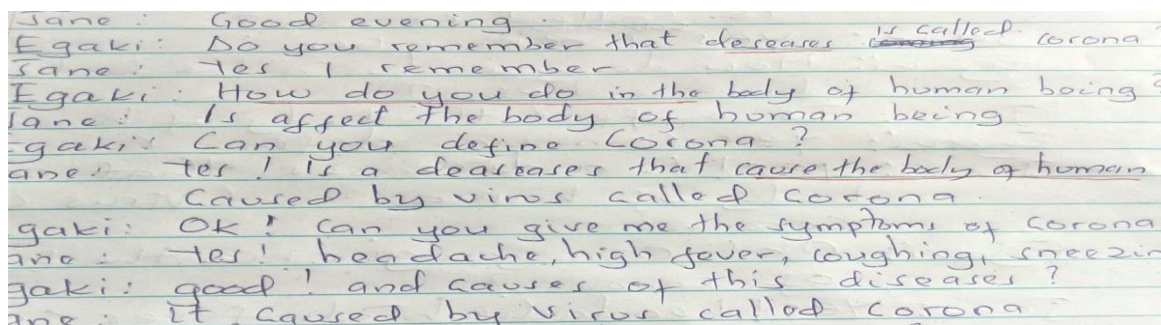 Jane : Good evening.
Egaki: Do you remember that deseases is called corona
Jane : Yes I remember
Egaki: How do you do in the body of human being?
Jane : Is affect the body of human being
gaki: Can you define Corona ?
ane: Yes ! Is a deasbases that cause the body of human
Caused by virus called Corona.
gaki: Ok ! Can you give me the symptoms of Corona
ane : Yes! headache, high fever, coughing, sneezin
gaki: good ! and causes of this diseases ?
ane : It caused by virus called Corona